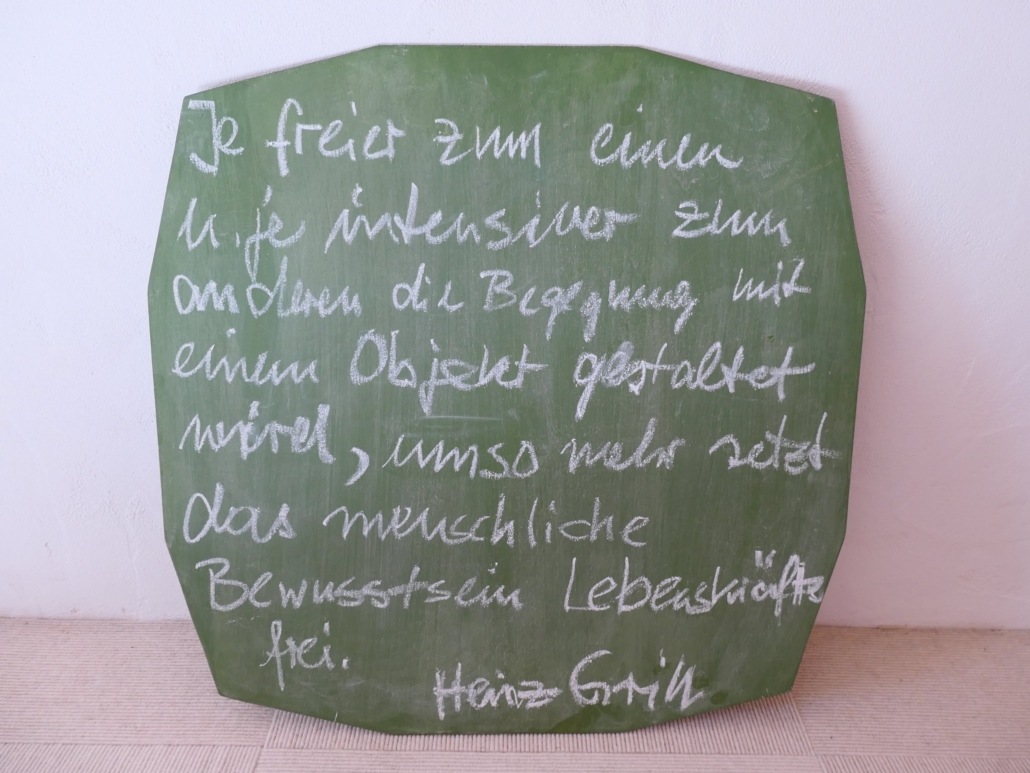 Je freier zum einen
u. je intensiver zum
anderen die Begegnung mit
einem Objekt gestaltet
wird, umso mehr setzt
das menschliche
Bewusstsein Lebenskräfte
frei.
Heinz Grill